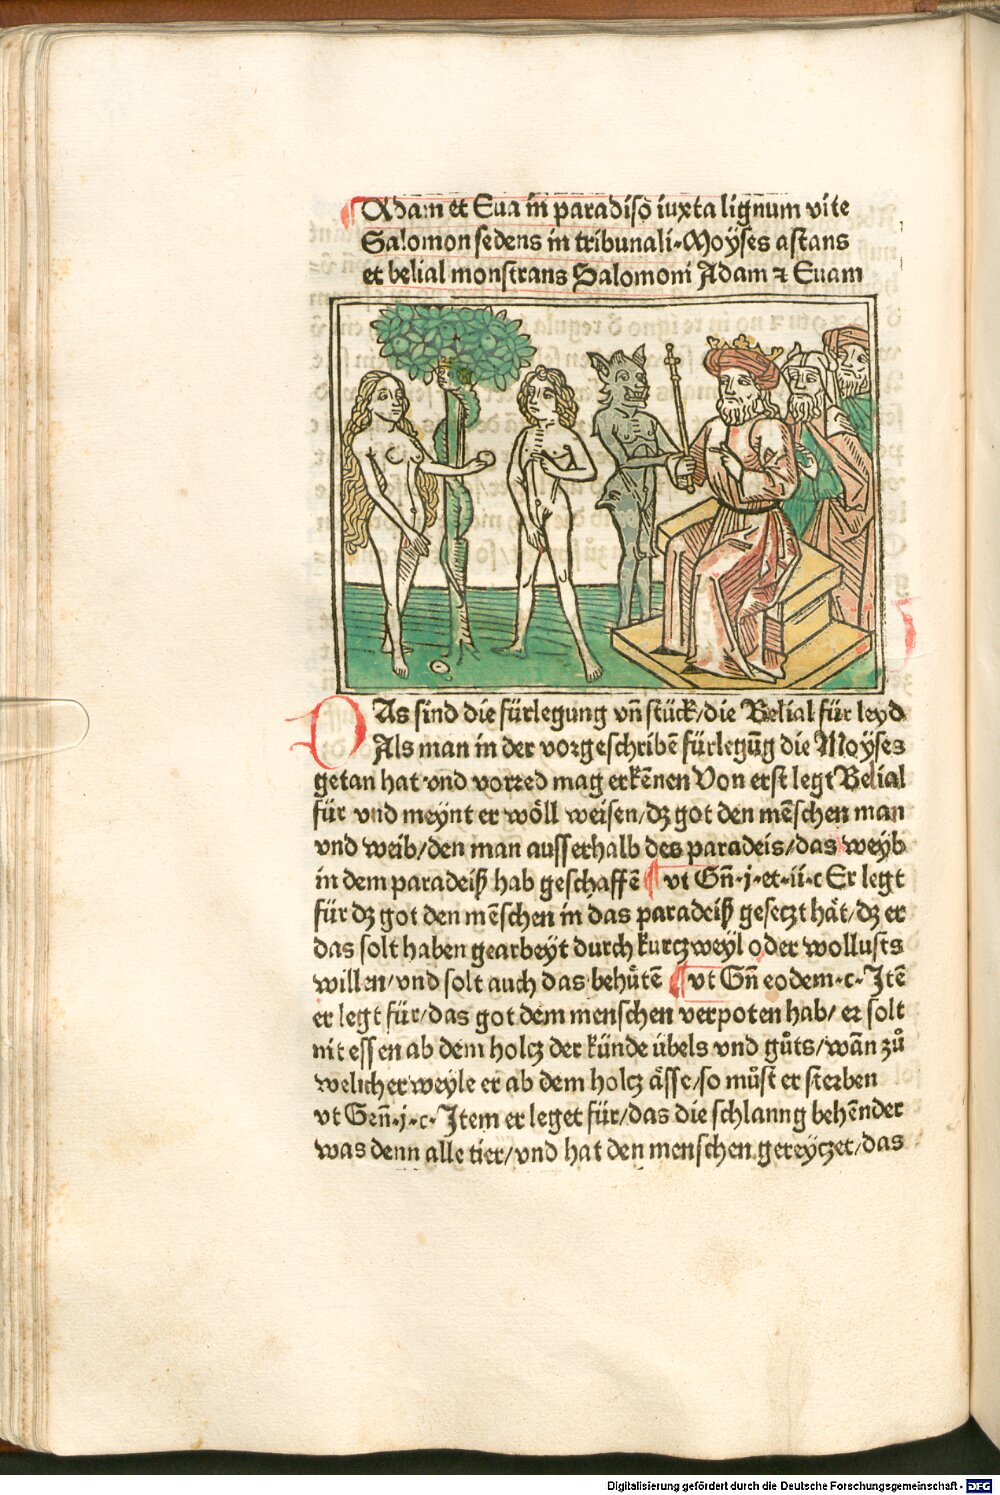 Adam et Eua in paradisō iuxta lignum vite
Salomon sedens in tribunali·Moÿses astans
et belial monstrans Salomoni Adam ⁊ Euam
DAs sind die fürlegung vn̄ stück/die Belial für leyd
Als man in der vorgeschribē fürlegūg die Moÿses
getan hat vnd vorred mag erkēnen Von erst legt Belial
für vnd meynt er wöll weisen/dz got den mēschen man
vnd weib/den man ausserhalb des paradeis/das weyb
in dem paradeiß hab geschaffē vt Gn̄·j·et·ii·c Er legt
für dz got den mēschen in das paradeiß gesetzt hät/dz er
das solt haben gearbeyt durch kurczweyl oder wollusts
willen/vnd solt auch das behütē vt Gn̄ eodem·c·Jtē
er legt für/das got dem menschen verpoten hab/ er solt
nit essen ab dem holcz der künde übels vnd gůts/wān zů
welicher weyle er ab dem holcz ässe/so můst er sterben
vt Gen̄·j·c·Jtem er leget für/das die schlanng behēnder
was denn alle tier/vnd hat den menschen gereyczet/das
Digitalisierung gefördert durch die Deutsche Forschungsgemeinschaft - DFG